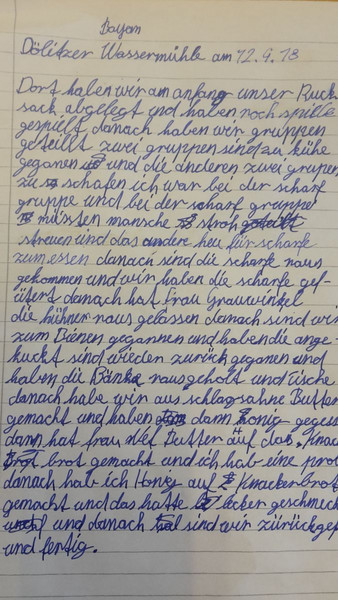 Bayan
Dölitzer Wassermühle am 12.9.18
Dort haben wir am anfang unser Ruck-
sack abgelegt und haben noch spille
gespillt danach haben wir gruppen
geteillt zwei gruppen sind zu kühe
geganen und die anderen zwei grupen
zu schafen ich war bei der scharf
gruppe und bei der scharf gruppe
müssen mansche stroh
streuen und das andere heu für scharfe
zum essen danach sind die scharfe raus
gekommen und wir haben die scharfe gef-
ütert danach hat frau Grauwinkel
die hühner raus gelassen danach sind wir
zum Bienen gegannen und haben die ange-
kuckt sind wieder zurück geganen und
haben die Bänke rausgeholt und tische
danach habe wir aus schlagsahne Butter
gemacht und haben dann honig geges
dann hat frau die Butter auf das Knac
brot gemacht und ich hab eine pro
danach hab ich Honig auf Knackerbrot
gemacht und das hatte lecker geschmeck
und danach sind wir zurückgef
und fertig.